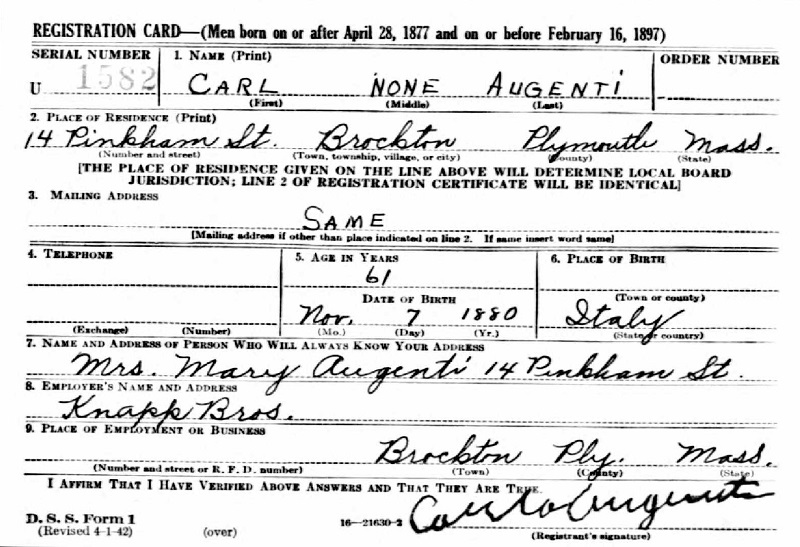 REGISTRATION CARD—(Men born on or after April 28, 1877 and on or before February 16, 1897)
SERIAL NUMBER 1. NAME (Print) ORDER NUMBER
U 1582 CARL NONE AUGENTI
(First) (Middle) (Last)
2. PLACE OF RESIDENCE (Print)
14 Pinkham St. Brockton Plymouth Mass.
(Number and street) (Town, township, village, or city) (County) (State)
[THE PLACE OF RESIDENCE GIVEN ON THE LINE ABOVE WILL DETERMINE LOCAL BOARD
JURISDICTION; LINE 2 OF REGISTRATION CERTIFICATE WILL BE IDENTICAL]
3. MAILING ADDRESS
SAME
[Mailing address if other than place indicated on line 2. If same insert word same]
4. TELEPHONE 5. AGE IN YEARS 6. PLACE OF BIRTH
61
DATE OF BIRTH (Town or county)
Nov. 7 1880 Italy
(Exchange) (Number) (Mo.) (Day) (Yr.) (State or country)
7. NAME AND ADDRESS OF PERSON WHO WILL ALWAYS KNOW YOUR ADDRESS
Mrs. Mary Augenti 14 Pinkham St.
8. EMPLOYER'S NAME AND ADDRESS
Knapp Bros.
9. PLACE OF EMPLOYMENT OR BUSINESS
Brockton Ply. Mass.
(Number and street or R. F. D. number) (Town) (County) (State)
I AFFIRM THAT I HAVE VERIFIED ABOVE ANSWERS AND THAT THEY ARE TRUE.
D. S. S. Form 1 16—21630-2 Carlo Augenti
(Revised 4-1-42) (over) (Registrant's signature)